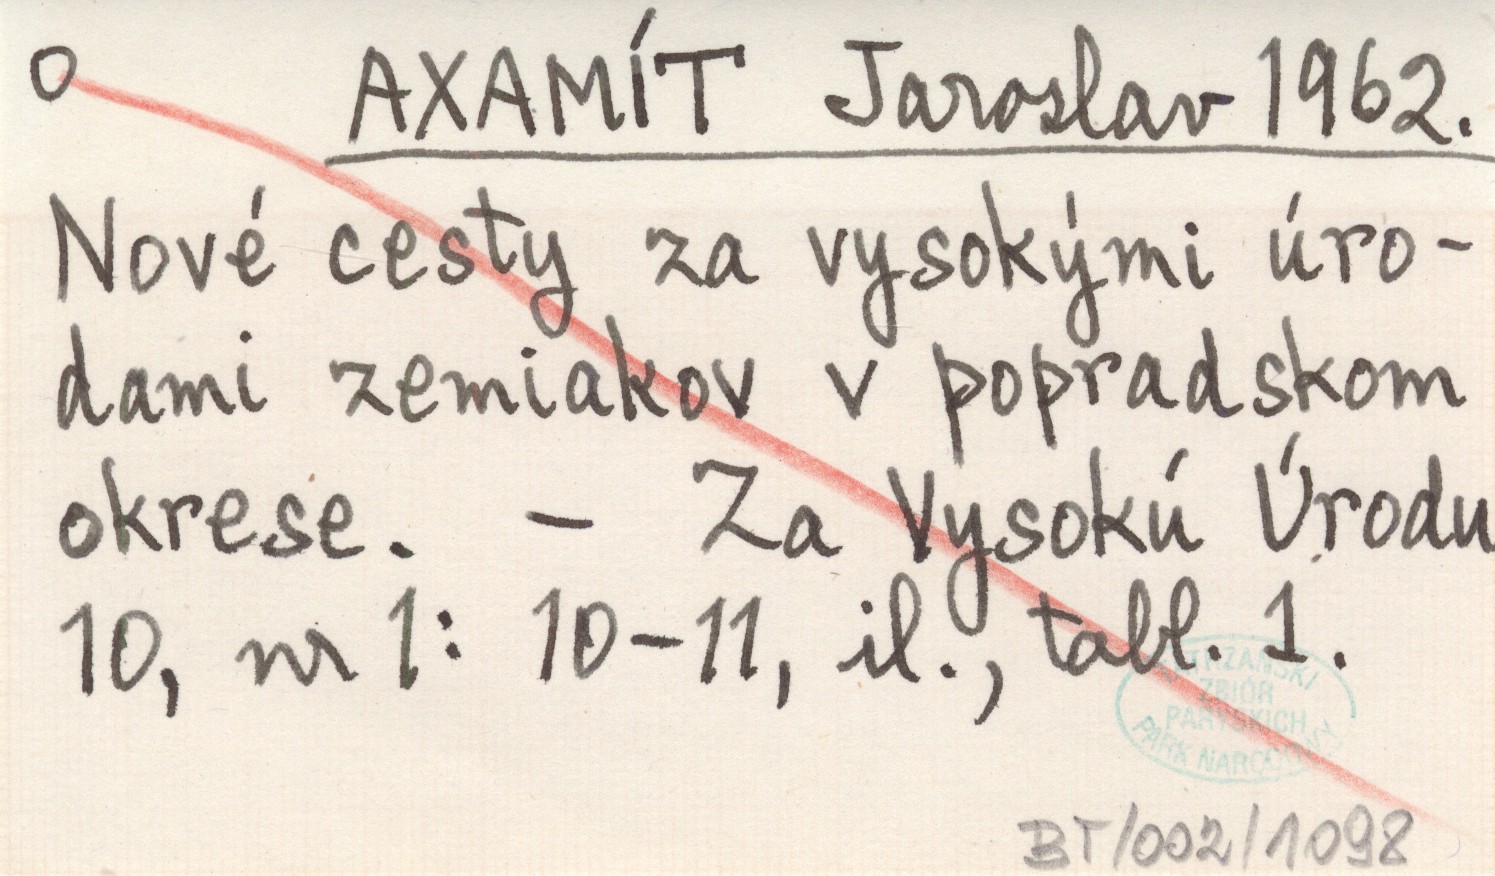 O AXAMÍT Jaroslav 1962.
Nové cesty za vysokými úro-
dami zemiakov v popradskom
okrese. - Za Vysokú Úrodu
10, nr 1: 10-11, il., tabl. 1.
TATRZAŃSKI
ZBIÓR
PARYSKICH
PARK NARODOWY
BT/002/1098